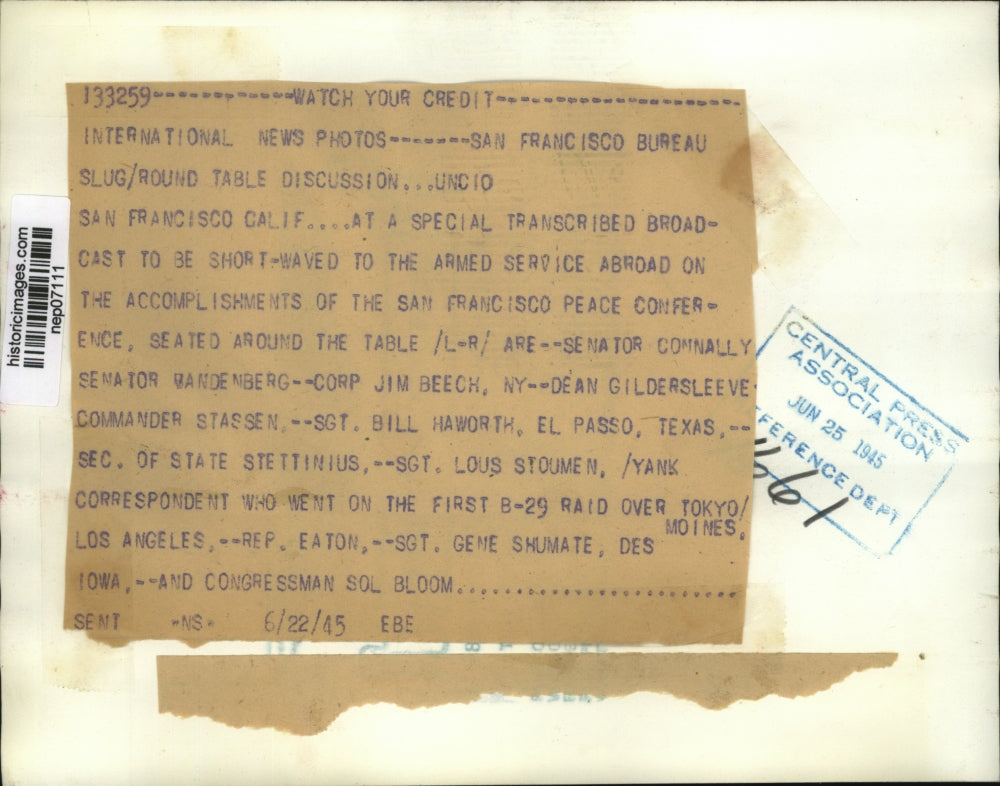 133259------------WATCH YOUR CREDIT---------------------
INTERNATIONAL NEWS PHOTOS-------SAN FRANCISCO BUREAU
SLUG/ROUND TABLE DISCUSSION...UNCIO
SAN FRANCISCO CALIF....AT A SPECIAL TRANSCRIBED BROAD-
CAST TO BE SHORT-WAVED TO THE ARMED SERVICE ABROAD ON
THE ACCOMPLISHMENTS OF THE SAN FRANCISCO PEACE CONFER-
ENCE, SEATED AROUND THE TABLE /L-R/ ARE--SENATOR CONNALLY
SENATOR VANDENBERG--CORP JIM BEECH, NY--DEAN GILDERSLEEVE
COMMANDER STASSEN,--SGT. BILL HAWORTH, EL PASSO, TEXAS,--
SEC. OF STATE STETTINIUS,--SGT. LOUS STOUMEN, /YANK
CORRESPONDENT WHO WENT ON THE FIRST B-29 RAID OVER TOKYO/
LOS ANGELES,--REP. EATON,--SGT. GENE SHUMATE, DES MOINES,
IOWA,--AND CONGRESSMAN SOL BLOOM.........................
SENT -NS- 6/22/45 EBE
historicimages.com
nep07111
CENTRAL PRESS
ASSOCIATION
JUN 25 1945
FERENCE DEPT